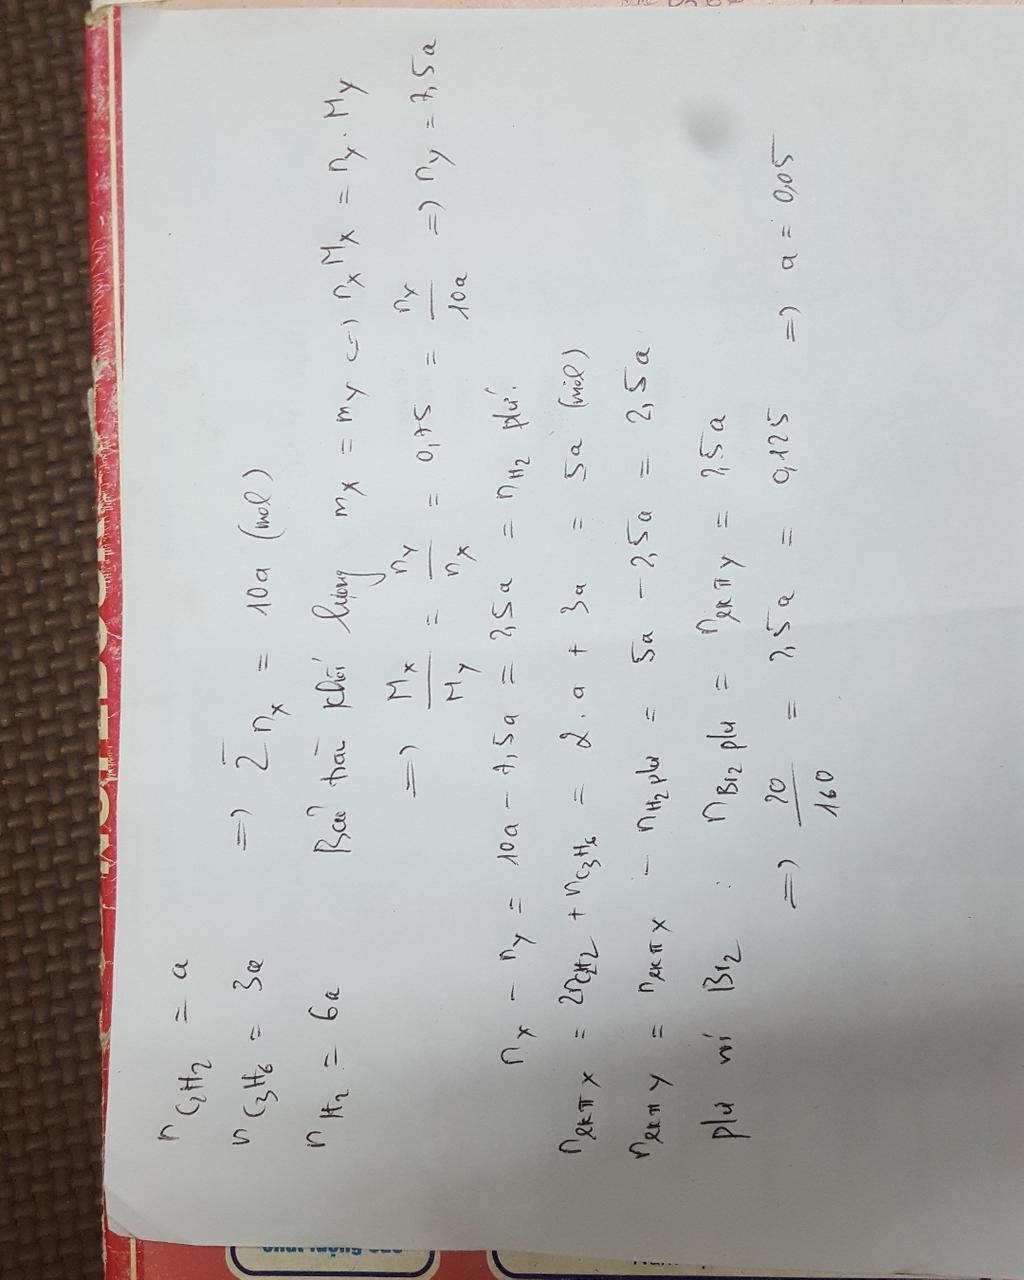 n C2H2 = a
n C3H6 = 3a => Σ nX = 10a (mol)
n H2 = 6a Bảo toàn khối lượng mX = mY <=> nX MX = nY . MY
=> MX / MY = nY / nX = 0,75 = nY / 10a => nY = 7,5a
nX - nY = 10a - 7,5a = 2,5a = nH2 pứ.
n lkπ X = 2nC2H2 + nC3H6 = 2.a + 3a = 5a (mol)
n lkπ Y = n lkπ X - nH2 pứ = 5a - 2,5a = 2,5a
pứ với Br2 : nBr2 pứ = n lkπ Y = 2,5a
=> 20 / 160 = 2,5a = 0,125 => a = 0,05